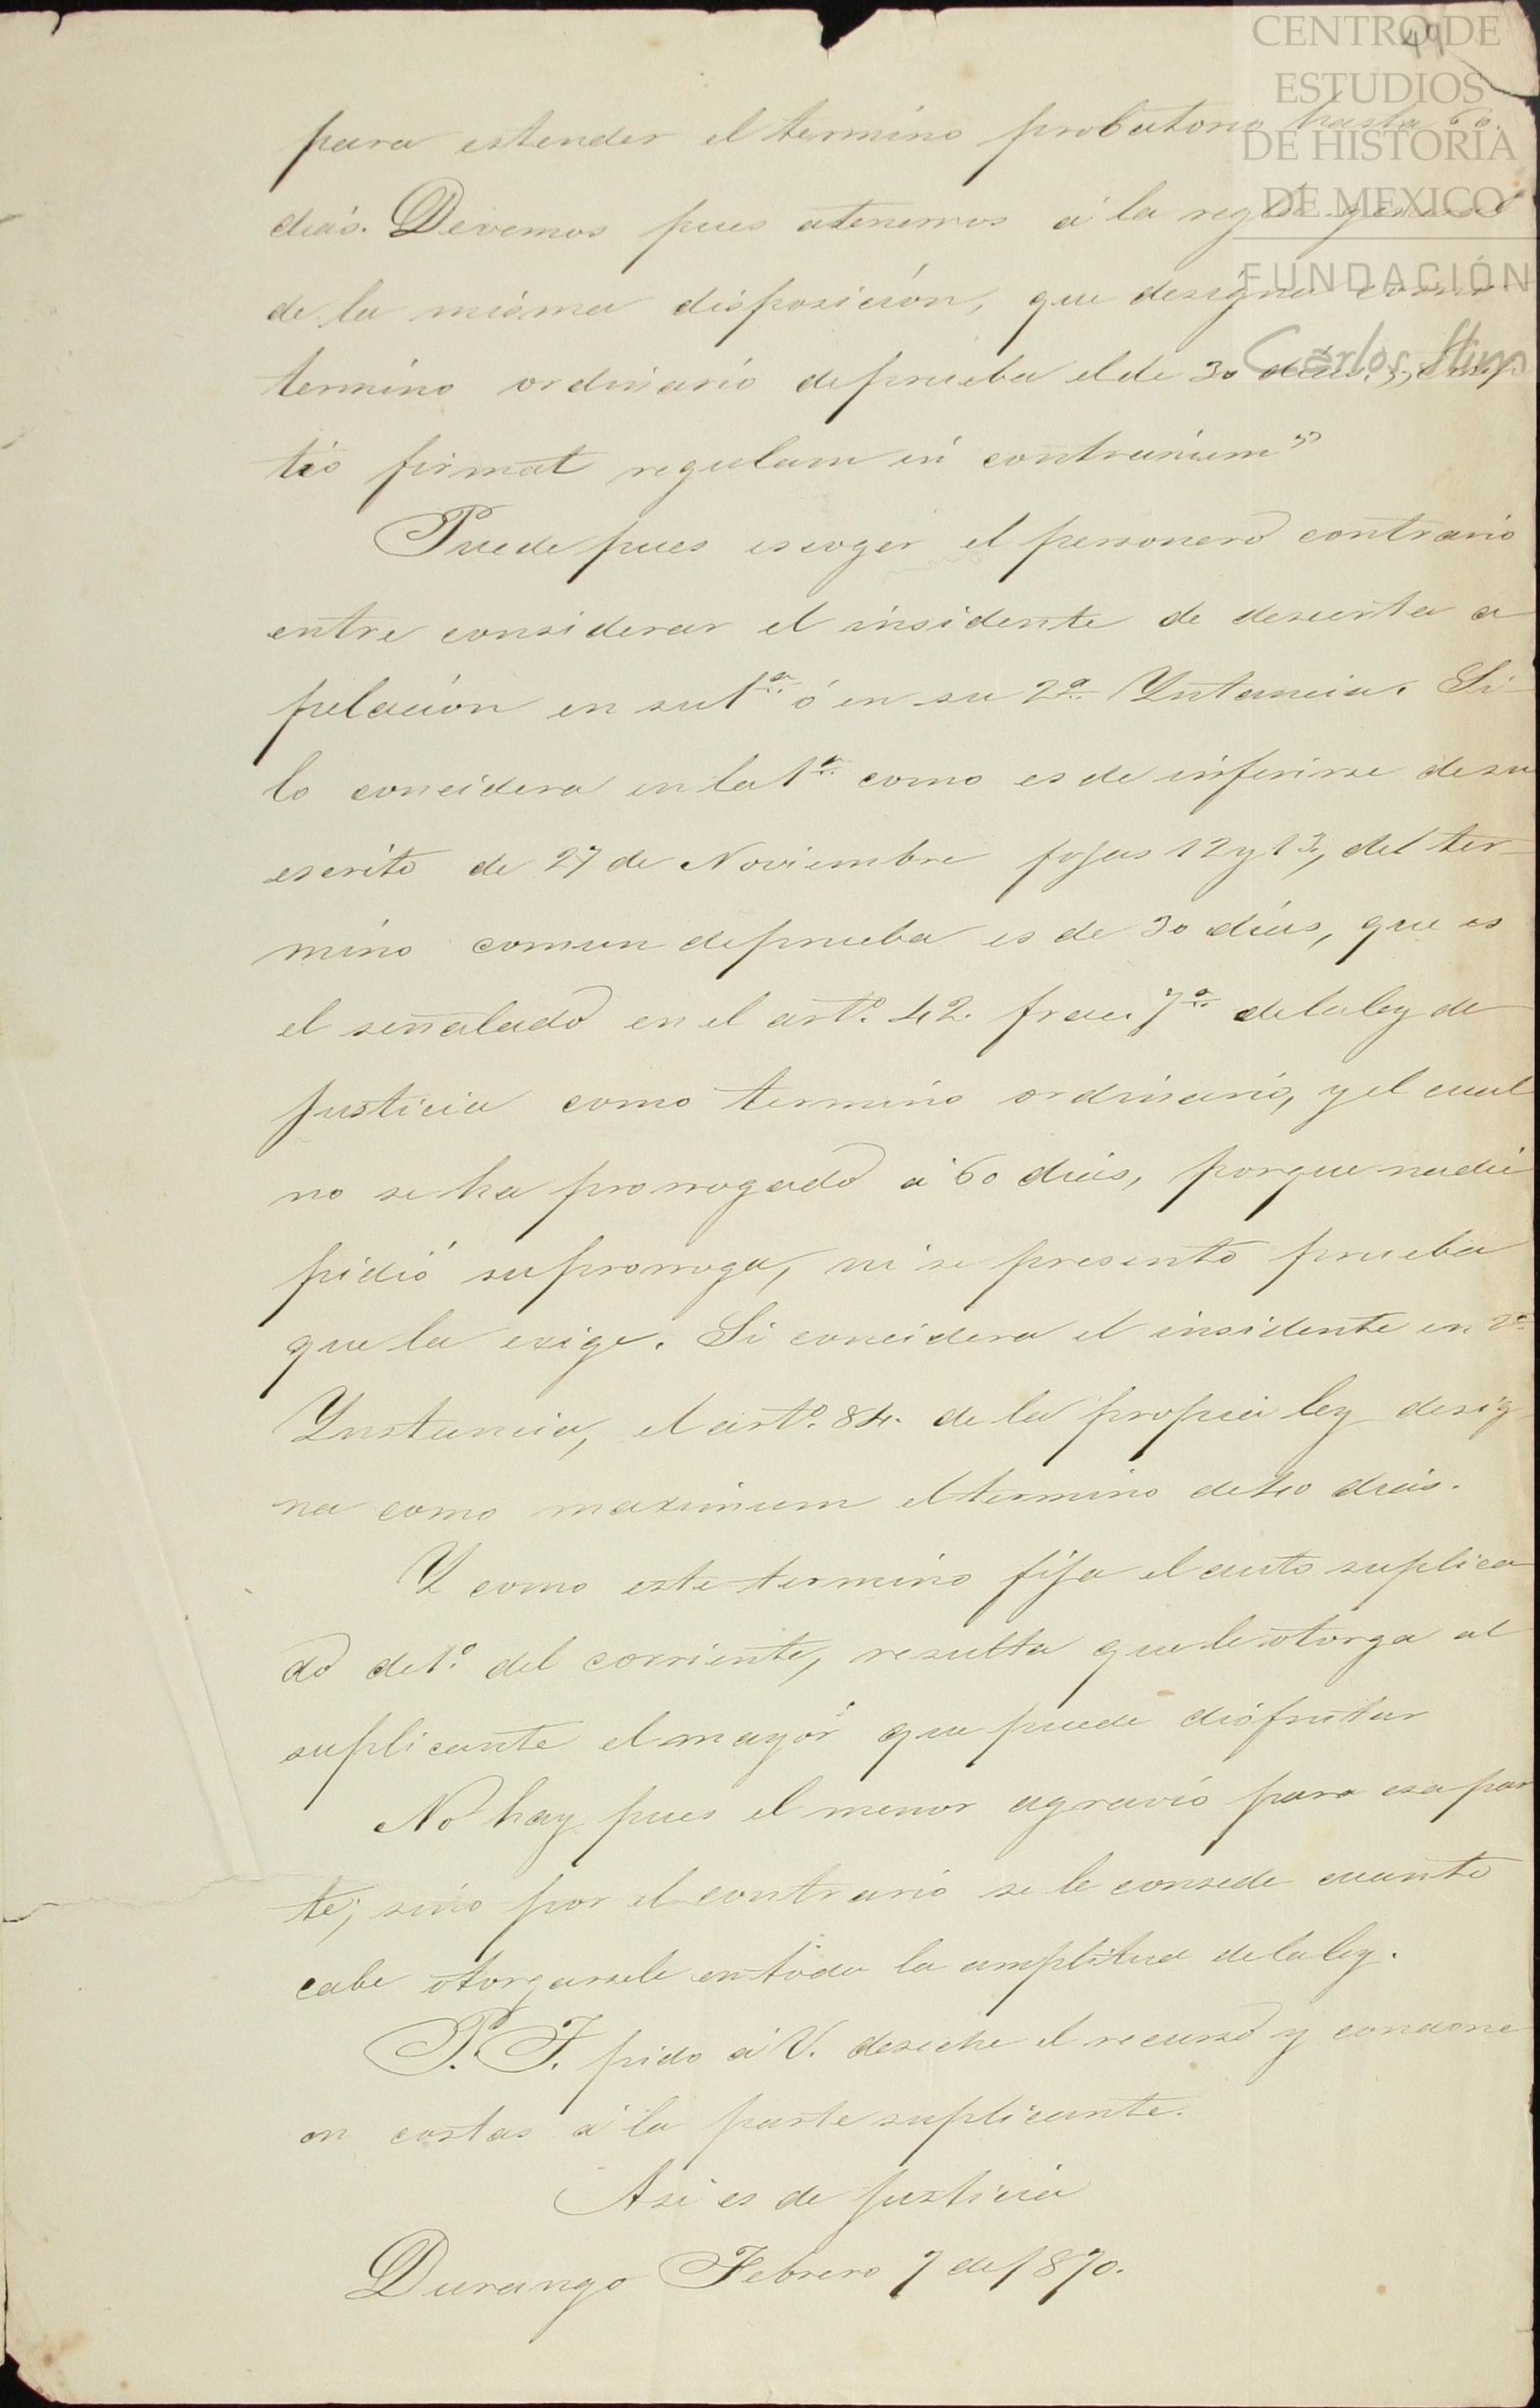 CENTRO DE
ESTUDIOS
DE HISTORIA
DE MEXICO
FUNDACIÓN
Carlos Slim
para estender el termino probatorio hasta 60.
dias. Devemos pues atenernos á la regla general
de la misma disposición, que designa como
termino ordinario de prueba el de 30 dias. „excep
tio firmat regulam in contrarium”
Puede pues escoger el personero contrario
entre considerar el insidente de desierta a
pelación en su 1ª ó en su 2ª Yntancia. Si
lo concidera en la 1ª como es de inferirse de su
escrito de 27 de Noviembre fojas 12 y 13, del ter-
mino comun de prueba es de 30 dias, que es
el señalado en el artº. 42. frac. 7ª de la ley de
justicia como termino ordinario, y el cual
no se ha prorrogado á 60 dias, porque nadie
pidió su prorroga, ni se presentó prueba
que la exige. Si concidera el insidente en 2ª
Ynstancia, el artº. 84. de la propia ley desig
na como maximum el termino de 40 dias.
Y como este termino fija el auto suplica
do de 1º. del corriente, resulta que le otorga al
suplicante el mayor que puede disfrutar
No hay pues el menor agravio para esa par
te; sino por el contrario se le consede cuanto
cabe otorgarsele en toda la amplitud de la ley.
P. F. pido á V. deseche el recurso y condone
en costas á la parte suplicante.
Asi es de justicia
Durango Febrero 7 de 1870.